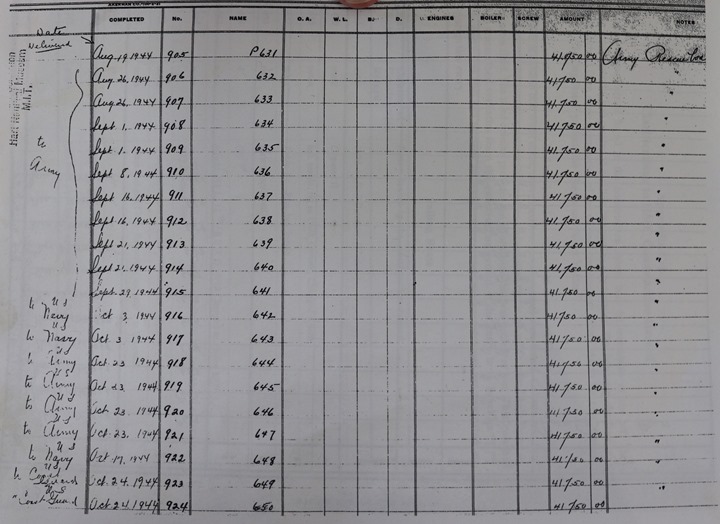 COMPLETED No. NAME O. A. W. L. B. D. ENGINES BOILER SCREW AMOUNT NOTES
Date
Delivered
Hart Nautical Museum
M.I.T.
Aug 19 1944 905 P631 41,750 00 Army Rescue
Aug. 26, 1944 906 632 41,750 00 "
Aug 26, 1944 907 633 41,750 00 "
Sept 1, 1944 908 634 41,750 00 "
to Army
Sept 1, 1944 909 635 41,750 00 "
Sept 8, 1944 910 636 41,750 00 "
Sept 16, 1944 911 637 41,750 00 "
Sept 16, 1944 912 638 41,750 00 "
Sept 21, 1944 913 639 41,750 00 "
Sept 21, 1944 914 640 41,750 00 "
Sept. 29, 1944 915 641 41,750 00 "
to US Navy Oct 3, 1944 916 642 41,750 00 "
to US Navy Oct 3 1944 917 643 41,750 00 "
to US Army Oct 23 1944 918 644 41,750 00 "
to US Army Oct 23, 1944 919 645 41,750 00 "
to US Army Oct. 23, 1944 920 646 41,750 00 "
to US Army Oct. 23, 1944 921 647 41,750 00 "
to US Navy Oct 19, 1944 922 648 41,750 00 "
to US Coast Guard Oct. 24, 1944 923 649 41,750 00 "
" US Coast Guard Oct 24, 1944 924 650 41,750 00